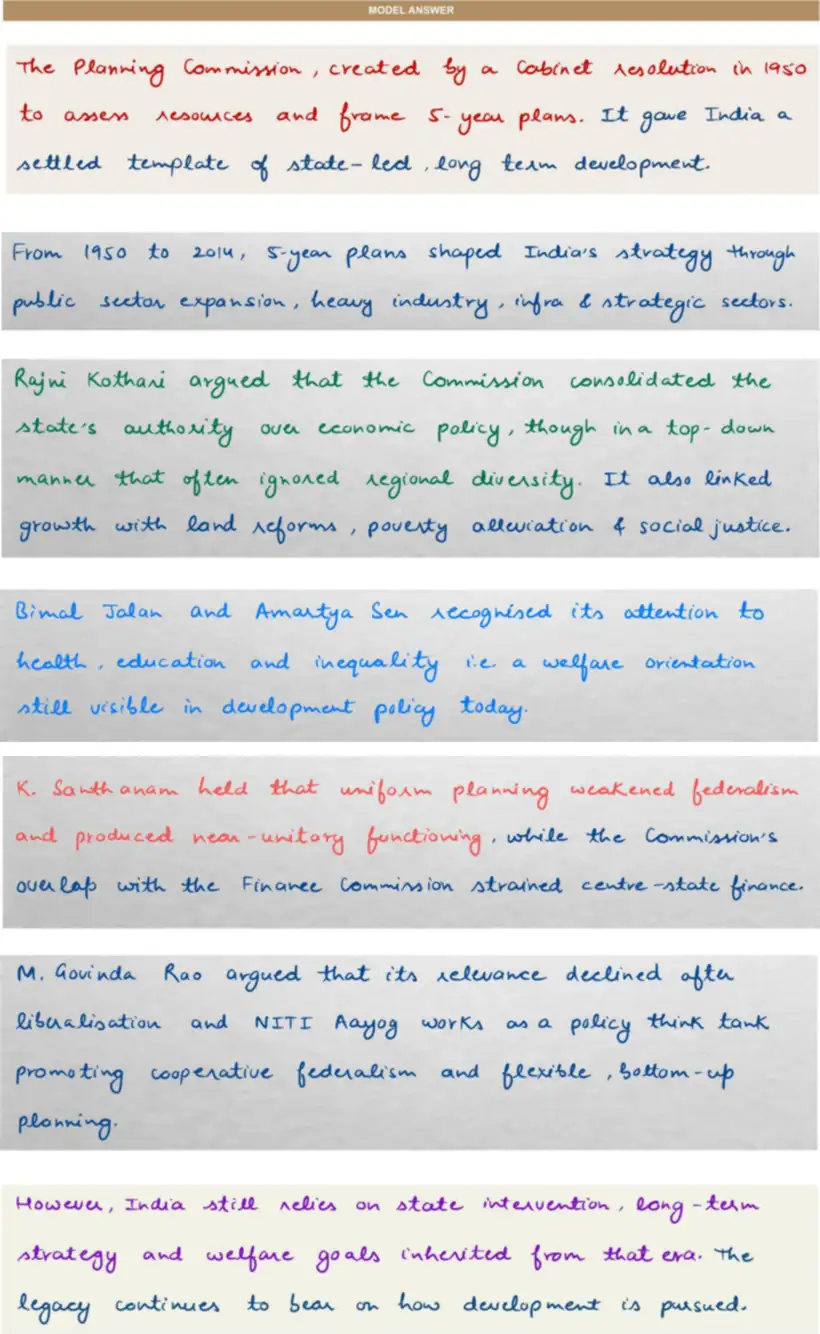 MODEL ANSWER
The Planning Commission, created by a Cabinet resolution in 1950
to assess resources and frame 5-year plans. It gave India a
settled template of state-led, long term development.
From 1950 to 2014, 5-year plans shaped India's strategy through
public sector expansion, heavy industry, infra & strategic sectors.
Rajni Kothari argued that the Commission consolidated the
state's authority over economic policy, though in a top-down
manner that often ignored regional diversity. It also linked
growth with land reforms, poverty alleviation & social justice.
Bimal Jalan and Amartya Sen recognised its attention to
health, education and inequality i.e. a welfare orientation
still visible in development policy today.
K. Santhanam held that uniform planning weakened federalism
and produced near-unitary functioning, while the Commission's
overlap with the Finance Commission strained centre-state finance.
M. Govinda Rao argued that its relevance declined after
liberalisation and NITI Aayog works as a policy think tank
promoting cooperative federalism and flexible, bottom-up
planning.
However, India still relies on state intervention, long-term
strategy and welfare goals inherited from that era. The
legacy continues to bear on how development is pursued.